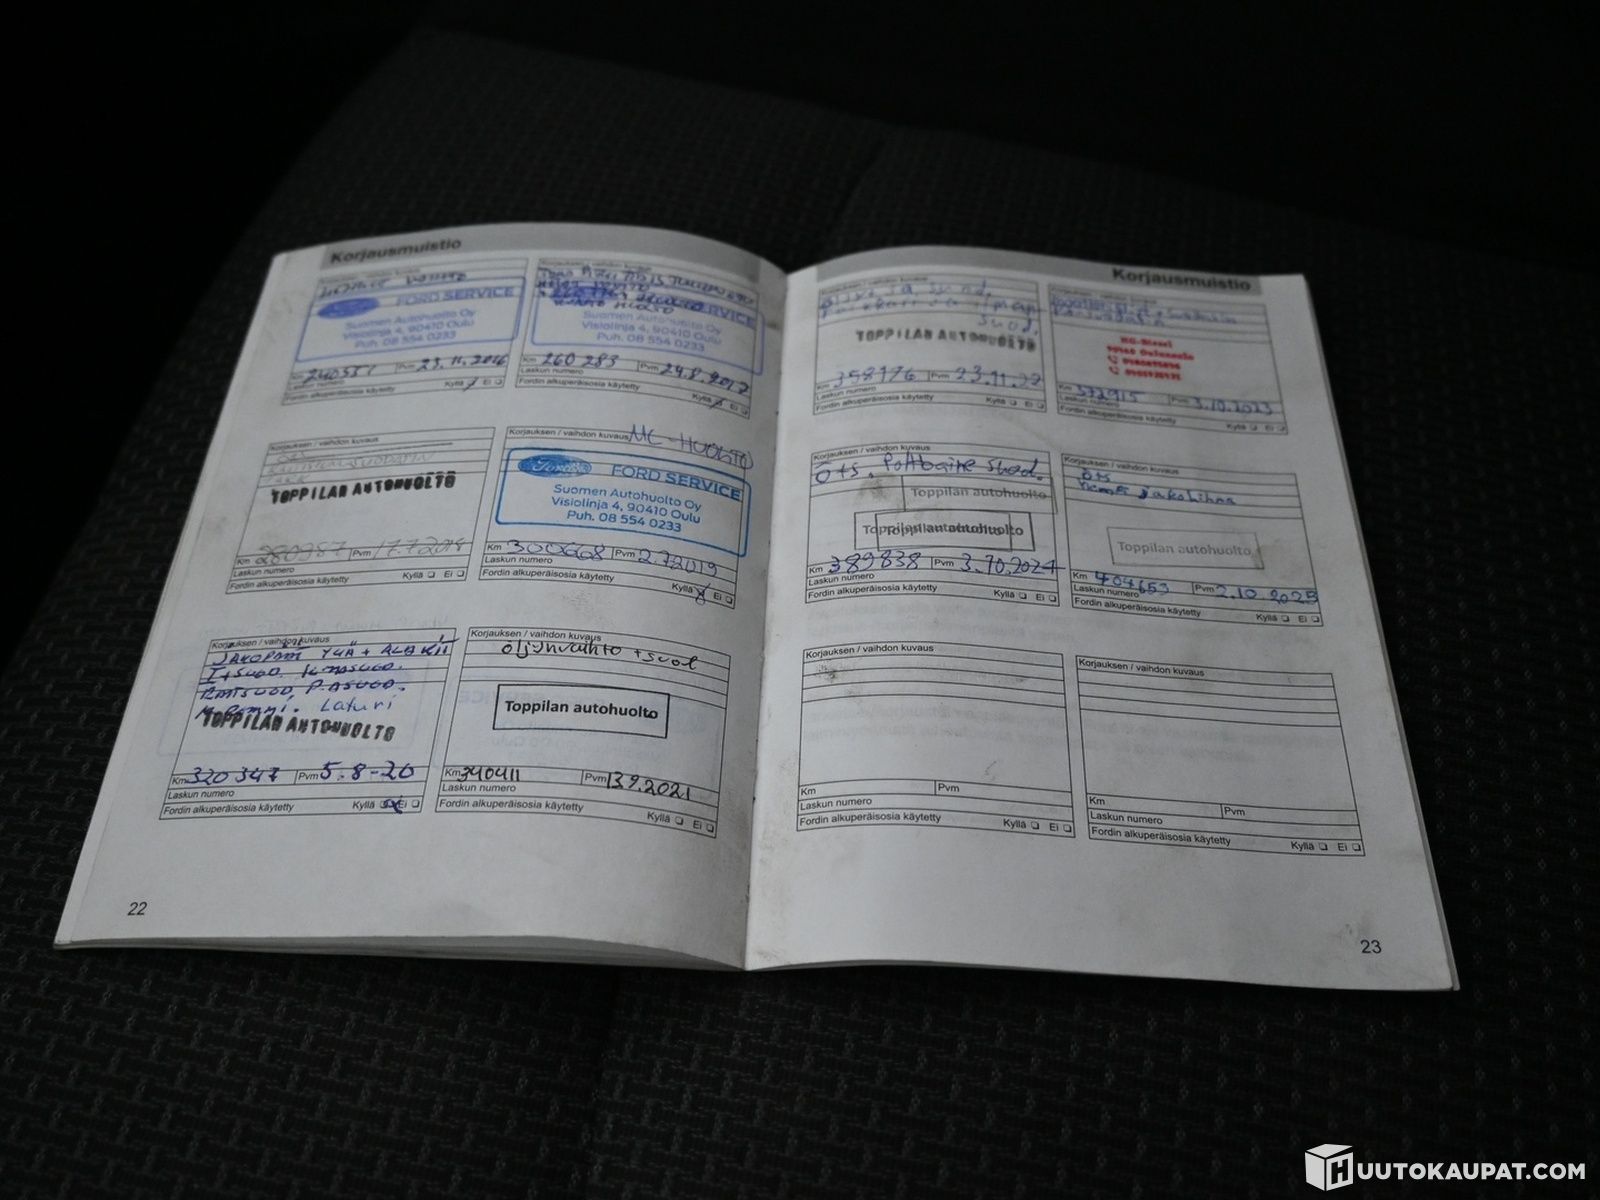 Korjausmuistio
Korjauksen / vaihdon kuvaus
Ford FORD SERVICE
Suomen Autohuolto Oy
Visiolinja 4, 90410 Oulu
Puh. 08 554 0233
Km 240551 Pvm 23.11.2016
Laskun numero
Fordin alkuperäisosia käytetty Kyllä Ei
Korjauksen / vaihdon kuvaus
FORD SERVICE
Suomen Autohuolto Oy
Visiolinja 4, 90410 Oulu
Puh. 08 554 0233
Km 260 283 Pvm 24.8.2017
Laskun numero
Fordin alkuperäisosia käytetty Kyllä Ei
Korjauksen / vaihdon kuvaus
TOPPILAN AUTOHUOLTO
Km 280987 Pvm 17.7.2018
Laskun numero
Fordin alkuperäisosia käytetty Kyllä Ei
Korjauksen / vaihdon kuvaus MC-HUOLTO
Ford FORD SERVICE
Suomen Autohuolto Oy
Visiolinja 4, 90410 Oulu
Puh. 08 554 0233
Km 300668 Pvm 2.7.2019
Laskun numero
Fordin alkuperäisosia käytetty Kyllä Ei
Korjauksen / vaihdon kuvaus
JAKOPÄÄ YLÄ + ALA
P.ASUOD.
Laturi
TOPPILAN AUTOHUOLTO
Km 320 347 Pvm 5.8-20
Laskun numero
Fordin alkuperäisosia käytetty Kyllä Ei
Korjauksen / vaihdon kuvaus
öljynvaihto + suod
Toppilan autohuolto
Km 340411 Pvm 13.9.2021
Laskun numero
Fordin alkuperäisosia käytetty Kyllä Ei
22
Korjausmuistio
Korjauksen / vaihdon kuvaus
TOPPILAN AUTOHUOLTO
Km 358176 Pvm 23.11.22
Laskun numero
Fordin alkuperäisosia käytetty Kyllä Ei
HG-Diesel
Km 372915 Pvm 3.10.2023
Laskun numero
Fordin alkuperäisosia käytetty Kyllä Ei
Korjauksen / vaihdon kuvaus
Ö+S, Polttoaine suod.
Toppilan autohuolto
Toppilan autohuolto
Km 389838 Pvm 3.10.2024
Laskun numero
Fordin alkuperäisosia käytetty Kyllä Ei
Korjauksen / vaihdon kuvaus
Ö+S
jakohihna
Toppilan autohuolto
Km 404653 Pvm 2.10.2025
Laskun numero
Fordin alkuperäisosia käytetty Kyllä Ei
Korjauksen / vaihdon kuvaus
Km Pvm
Laskun numero
Fordin alkuperäisosia käytetty Kyllä Ei
Korjauksen / vaihdon kuvaus
Km Pvm
Laskun numero
Fordin alkuperäisosia käytetty Kyllä Ei
23
HUUTOKAUPAT.COM